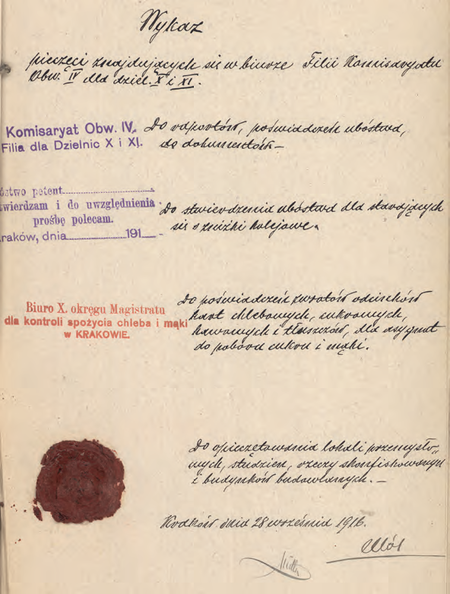 Wykaz
pieczęci znajdujących się w biurze Filii Komisaryatu
Obw. IV dla dziel. X i XI.
Komisaryat Obw. IV.
Filia dla Dzielnic X i XI.
Do odpowtóś, poświadczeń ubóstwa,
do dokumentów –
ństwo petent
twierdzam i do uwzględnienia
prośbę polecam.
raków, dnia 191
Do stwierdzenia ubóstwa dla starających
się o zniżki kolejowe.
Biuro X. okręgu Magistratu
dla kontroli spożycia chleba i mąki
w KRAKOWIE.
Do poświadczeń zwrotów odcinków
kart chlebowych, cukrowych,
kawowych i tłuszczów, dla asygnat
do poboru cukru i mąki.
Do opieczętowania lokali przemysło-
wych, studzien, rzeczy skonfiskowanych
i budynków budowlanych. –
dnia 28 września 1916.